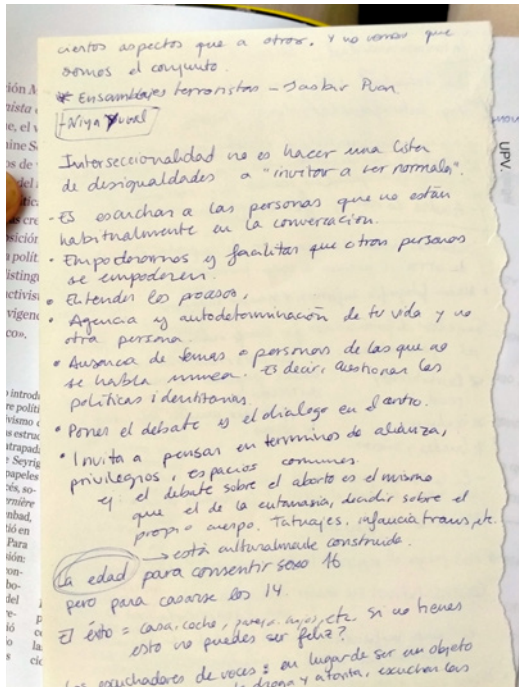 ciertos aspectos que a otros. Y no vemos que
somos el conjunto.
* Ensamblajes terroristas - Jasbir Puar
- Niya Yuval
Interseccionalidad no es hacer una lista
de desigualdades o "invitar a ser normales".
- Es escuchar a las personas que no están
habitualmente en la conversación.
• Empoderarnos y facilitar que otras personas
se empoderen.
• Entender los procesos.
• Agencia y autodeterminación de tu vida y no
otra persona.
• Ausencia de temas o personas de las que no
se habla nunca. Es decir, cuestionar las
políticas identitarias.
• Poner el debate y el dialogo en el centro.
• Invita a pensar en terminos de alianza,
privilegios, espacios comunes.
ej el debate sobre el aborto es el mismo
que el de la eutanasia, decidir sobre el
propio cuerpo. Tatuajes, infancia trans, etc.
→ está culturalmente construida.
La edad para consentir sexo 16
pero para casarse los 14.
El éxito = casa, coche, pareja, hijos, etc. si no tienes
esto no puedes ser feliz?
Los escuchadores de voces: en lugar de ser un objeto
droga y atonta, escuchan las
UPV.